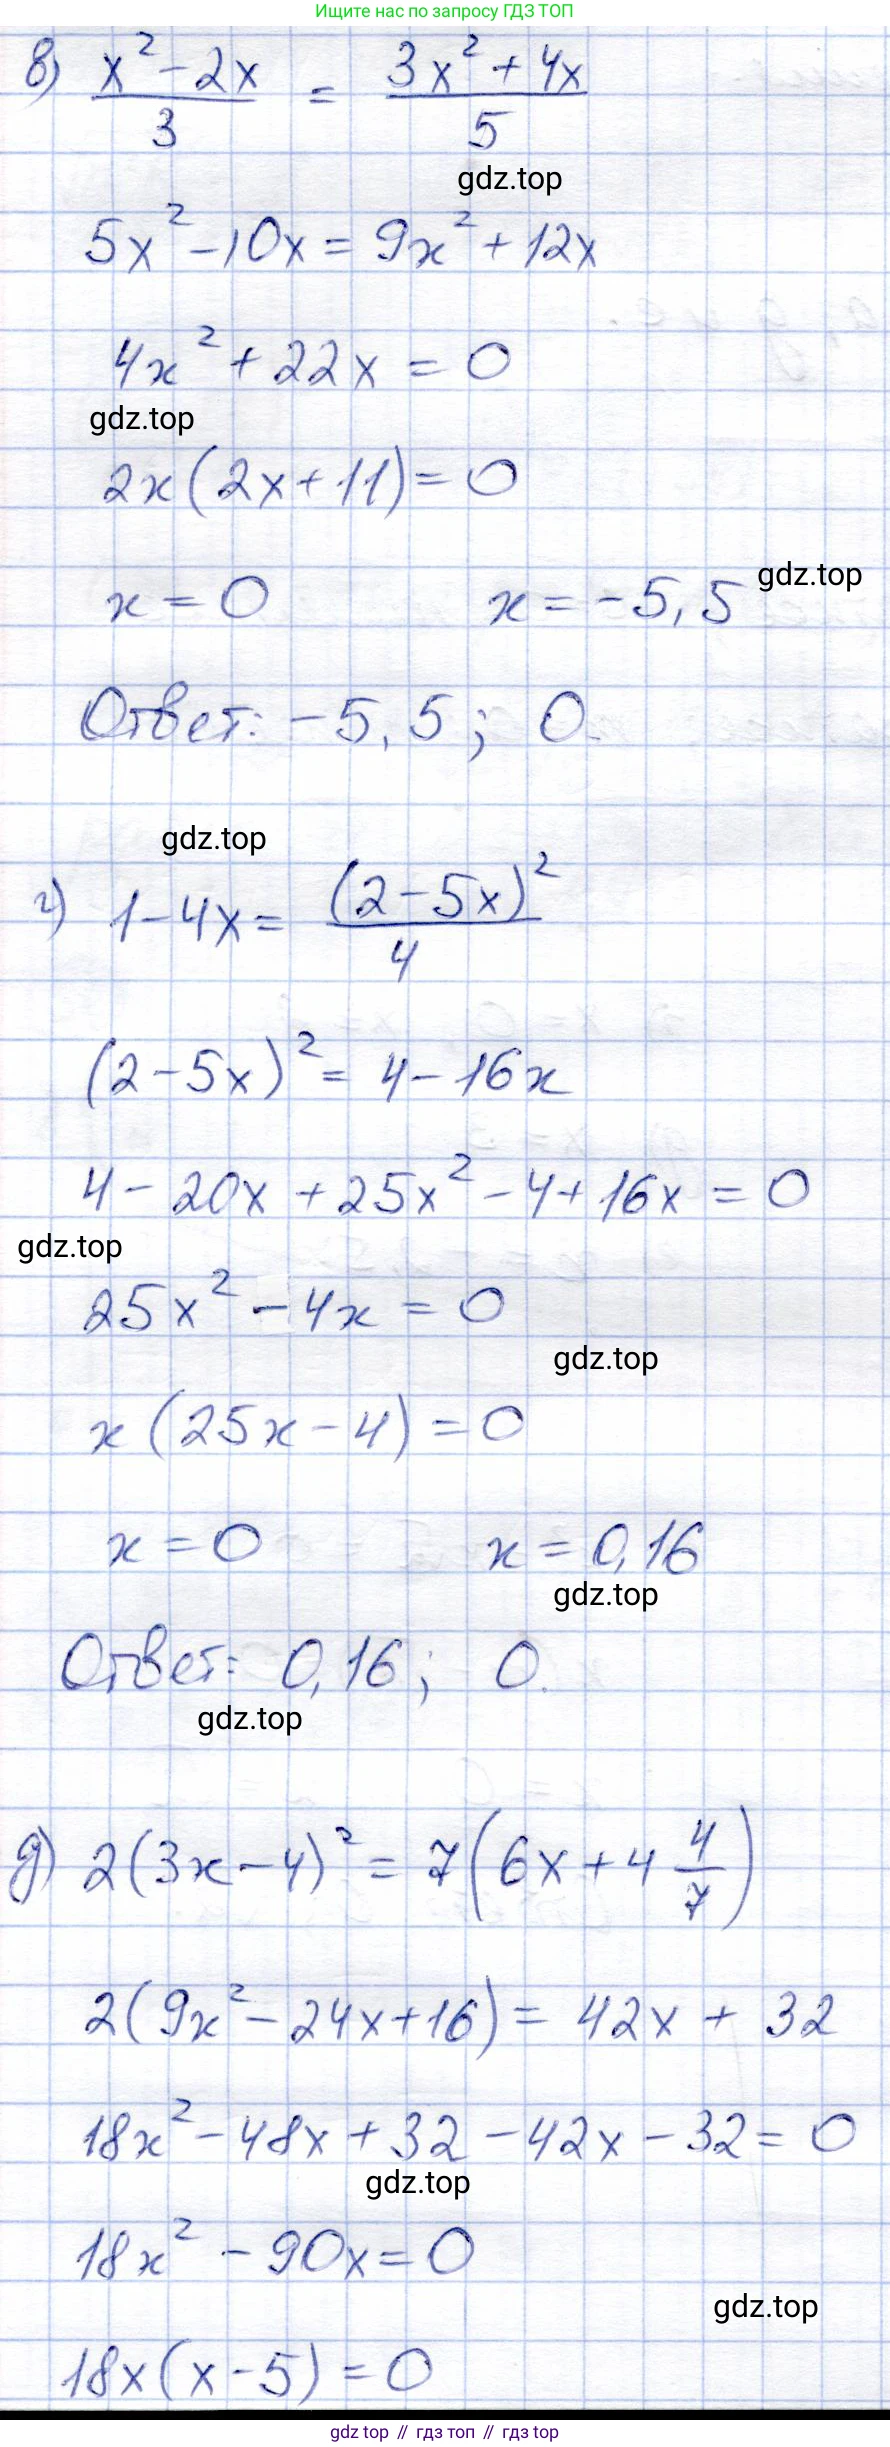 Ищите нас по запросу ГДЗ ТОП
в) (x² - 2x)/3 = (3x² + 4x)/5
gdz.top
5x² - 10x = 9x² + 12x
4x² + 22x = 0
gdz.top
2x(2x + 11) = 0
x = 0 x = -5,5
gdz.top
Ответ: -5,5; 0.
gdz.top
г) 1 - 4x = (2 - 5x)²/4
(2 - 5x)² = 4 - 16x
4 - 20x + 25x² - 4 + 16x = 0
gdz.top
25x² - 4x = 0
gdz.top
x(25x - 4) = 0
x = 0 x = 0,16
gdz.top
Ответ: 0,16; 0.
gdz.top
д) 2(3x - 4)² = 7(6x + 4 4/7)
2(9x² - 24x + 16) = 42x + 32
18x² - 48x + 32 - 42x - 32 = 0
gdz.top
18x² - 90x = 0
gdz.top
18x(x - 5) = 0
gdz top // гдз топ // гдз top